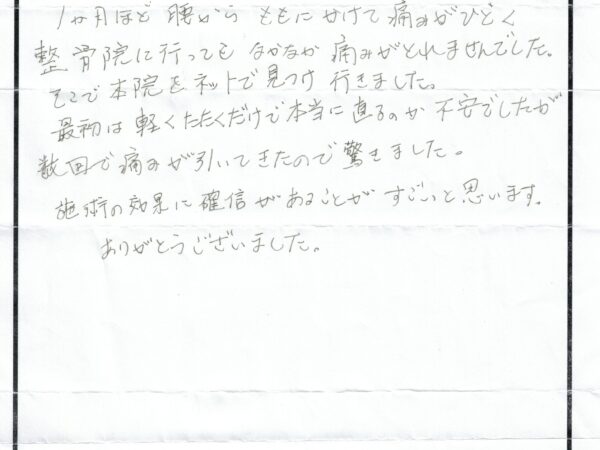 1か月ほど 腰から ももにかけて痛みがひどく
整骨院に行っても なかなか 痛みがとれませんでした。
そこで本院をネットで見つけ 行きました。
最初は軽くたたくだけで本当に直るのか 不安でしたが
数回で痛みが引いてきたので驚きました。
施術の効果に確信があることが すごいと思います。
ありがとうございました。